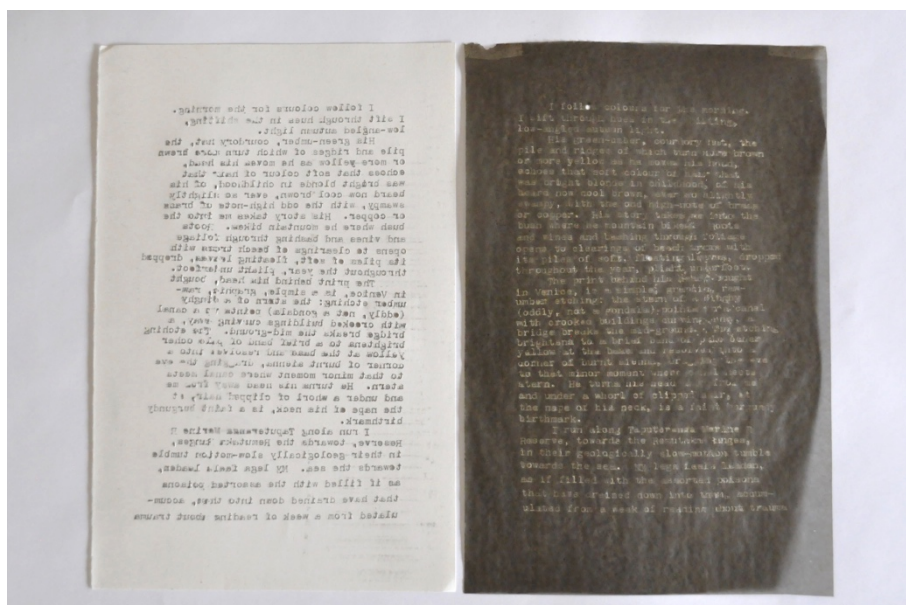 I follow colours for the morning.
I sift through hues in the shifting,
low-angled autumn light.
His green-umber, courdory hat, the
pile and ridges of which turn more brown
or more yellow as he moves his head,
echoes that soft colour of hair that
was bright blonde in childhood, of his
beard now cool brown, ever so slightly
swampy, with the odd high-note of brass
or copper. His story takes me into the
bush where he mountain bikes. Roots
and vines and bashing through foliage
opens to clearings of beech trees with
its piles of soft, floating leaves, dropped
throughout the year, pliant underfoot.
The print behind his head, bought
in Venice, is a simple, graphic, raw-
umber etching: the stern of a dinghy
(oddly, not a gondala) points a canal
with crooked buildings curving away, a
bridge breaks the mid-ground. The etching
brightens to a brief band of pale ochre
yellow at the base and resolves into a
corner of burnt sienna, dragging the eye
to that minor moment where canal meets
stern. He turns his head away from me
and under a whorl of clipped hair, at
the nape of his neck, is a faint burgundy
birthmark.
I run along Taputeranga Marine R
Reserve, towards the Remutaka ranges,
in their geologically slow-motion tumble
towards the sea. My legs feels leaden,
as if filled with the assorted poisons
that have drained down into them, accum-
ulated from a week of reading about trauma
I follow colours for the morning.
I sift through hues in the shifting,
low-angled autumn light.
His green-umber, courdory hat, the
pile and ridges of which turn more brown
or more yellow as he moves his head,
echoes that soft colour of hair that
was bright blonde in childhood, of his
beard now cool brown, ever so slightly
swampy, with the odd high-note of brass
or copper. His story takes me into the
bush where he mountain bikes. Roots
and vines and bashing through foliage
opens to clearings of beech trees with
its piles of soft, floating leaves, dropped
throughout the year, pliant underfoot.
The print behind his head, bought
in Venice, is a simple, graphic, raw-
umber etching: the stern of a dinghy
(oddly, not a gondala) points canal
with crooked buildings curving away, a
bridge breaks the mid-ground. The etching
brightens to a brief band of pale ochre
yellow at the base and resolves into a
corner of burnt sienna, the eye
to that minor moment where canal meets
stern. He turns his head from me
and under a whorl of clipped hair, at
the nape of his neck, is a faint burgundy
birthmark.
I run along Taputeranga Marine R
Reserve, towards the Remutaka ranges,
in their geologically slow-motion tumble
towards the sea. My legs feels leaden,
as if filled with the assorted poisons
that have drained down into them, accum-
ulated from a week of reading about trauma